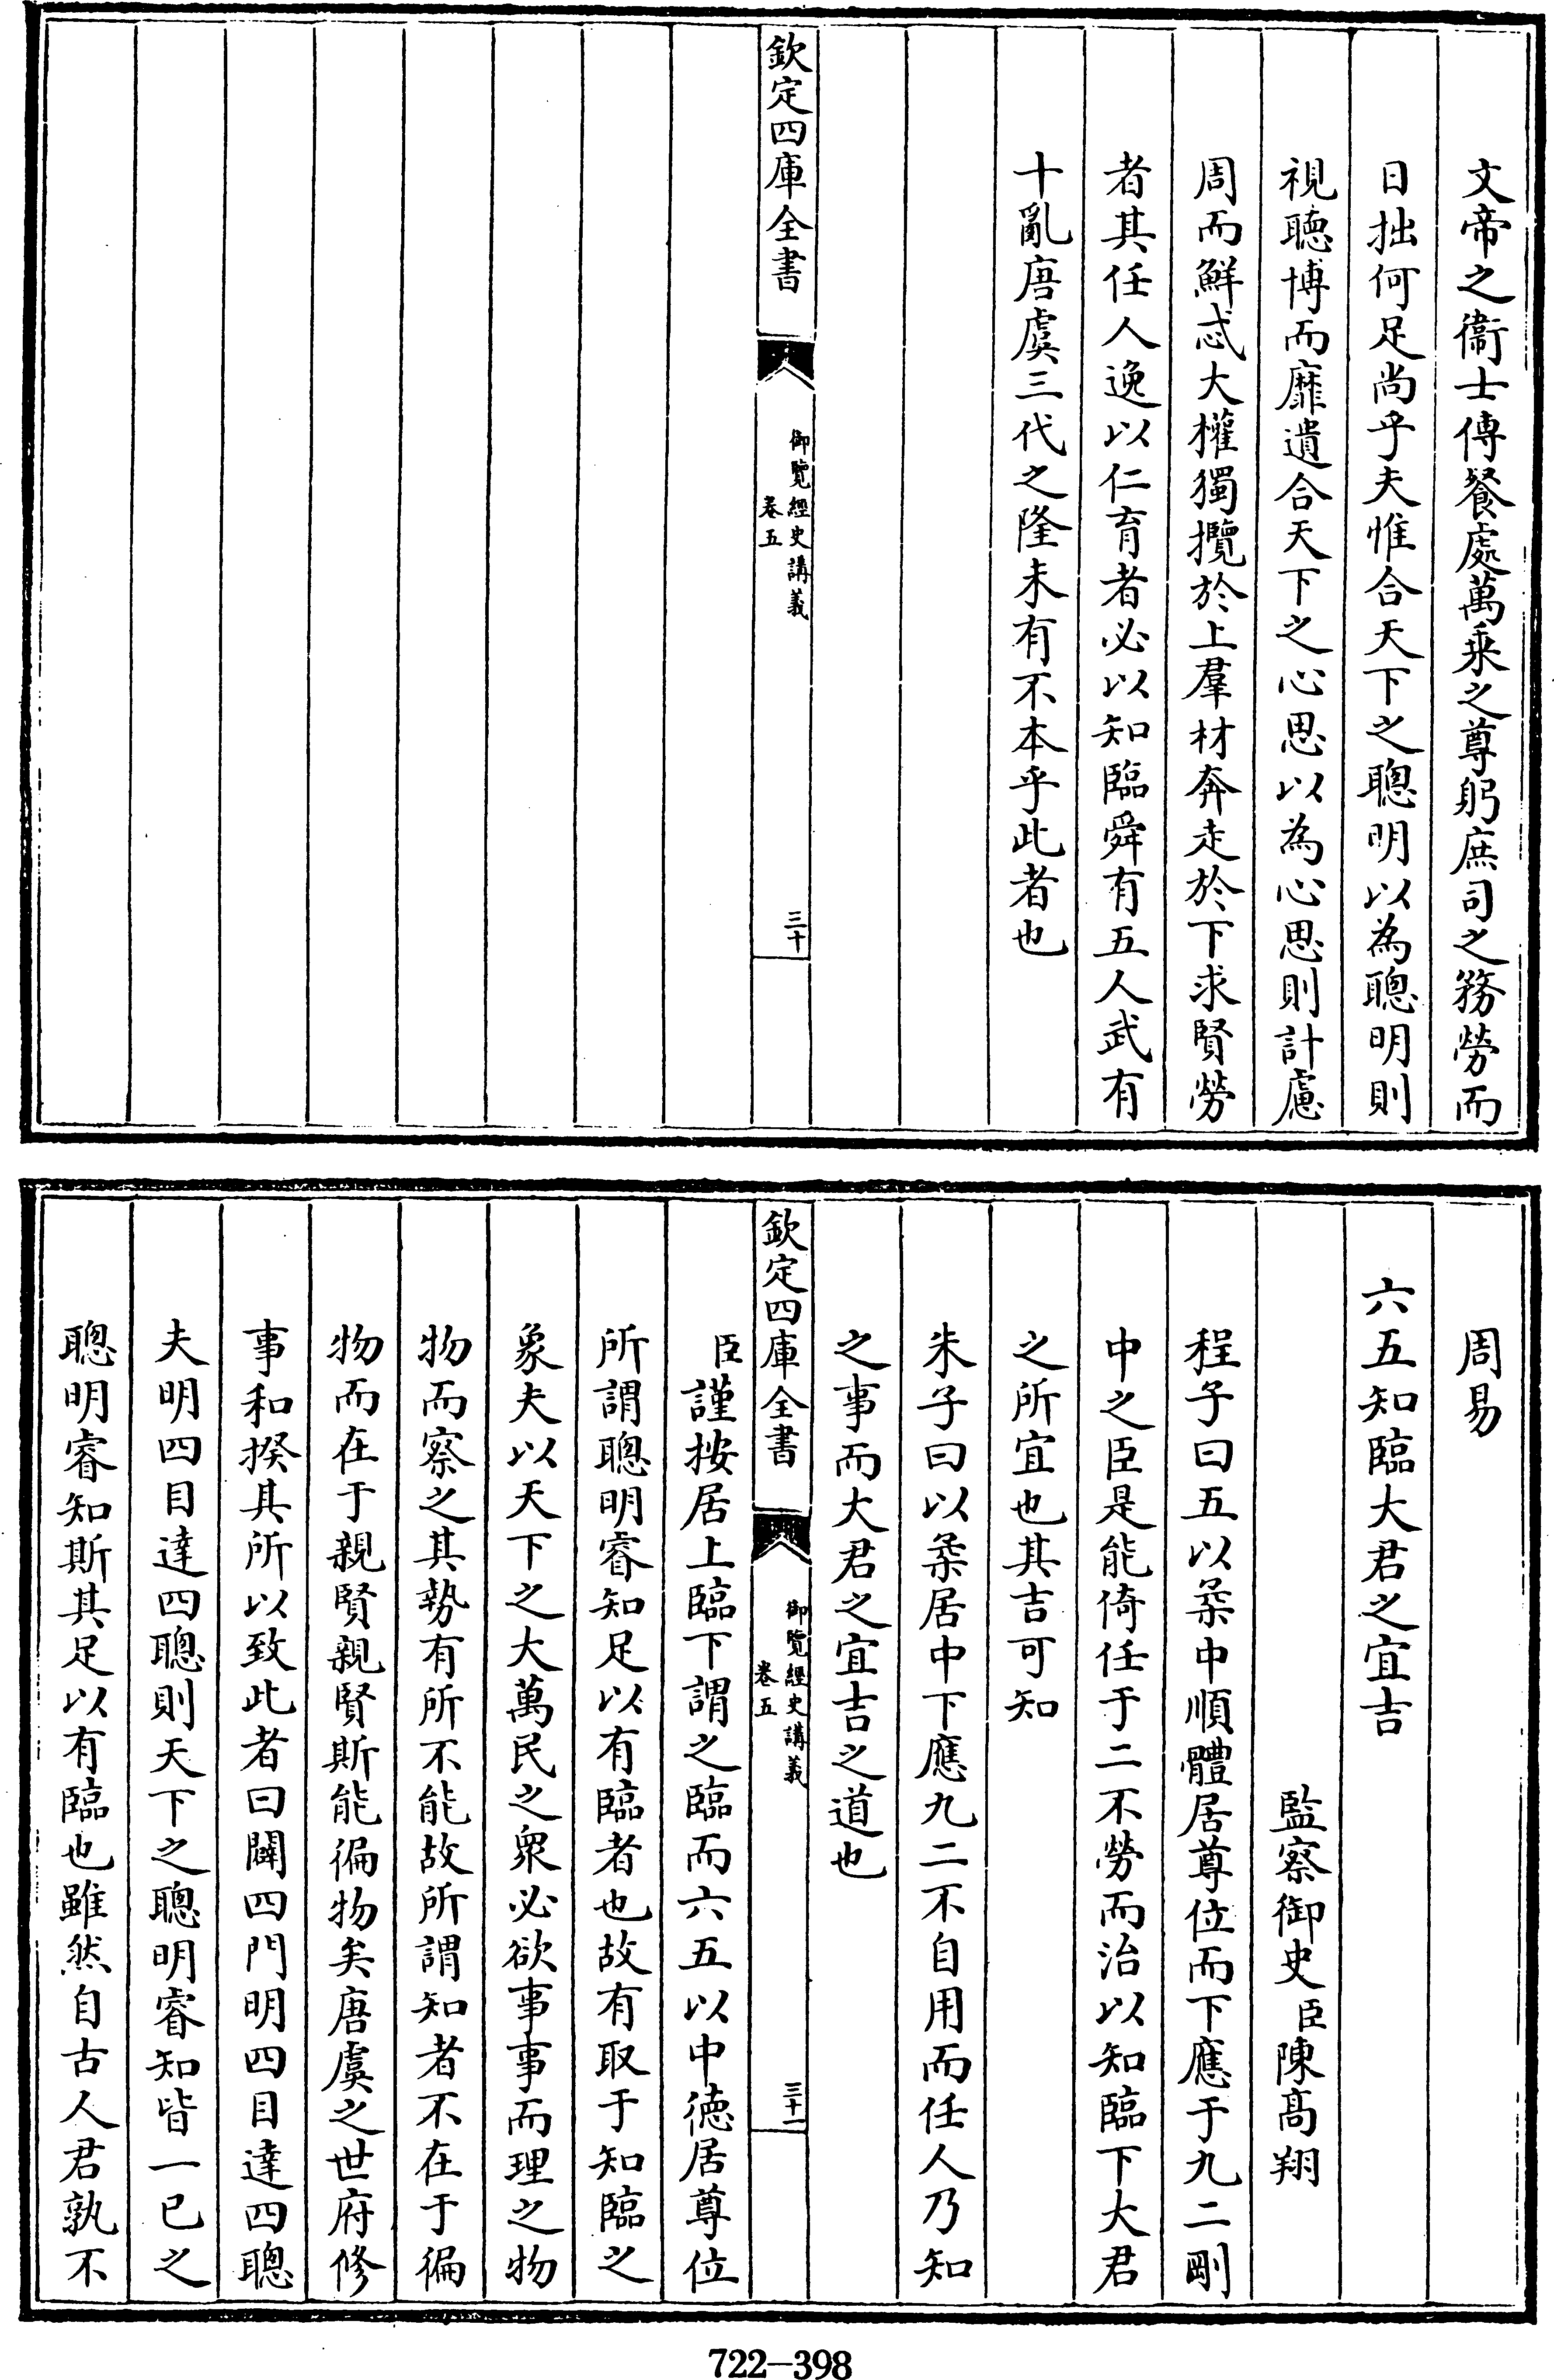 文帝之衞士傳餐處萬乗之尊躬庶司之務勞而
日拙何足尚乎夫惟合天下之聰明以為聰明則
視聽博而靡遺合天下之心思以為心思則計慮
周而鮮忒大權獨攬於上羣材奔走於下求賢勞
者其任人逸以仁育者必以知臨舜有五人武有
十亂唐虞三代之隆未有不本乎此者也
欽定四庫全書
御覽經史講義
卷五
三十
周易
六五知臨大君之宜吉
監察御史臣陳高翔
程子曰五以柔中順體居尊位而下應于九二剛
中之臣是能倚任于二不勞而治以知臨下大君
之所宜也其吉可知
朱子曰以柔居中下應九二不自用而任人乃知
之事而大君之宜吉之道也
欽定四庫全書
御覽經史講義
卷五
三十一
臣謹按居上臨下謂之臨而六五以中德居尊位
所謂聰明睿知足以有臨者也故有取于知臨之
象夫以天下之大萬民之衆必欲事事而理之物
物而察之其勢有所不能故所謂知者不在于徧
物而在于親賢親賢斯能徧物矣唐虞之世府修
事和揆其所以致此者曰闢四門明四目達四聰
夫明四目達四聰則天下之聰明睿知皆一已之
聰明睿知斯其足以有臨也雖然自古人君孰不
722—398